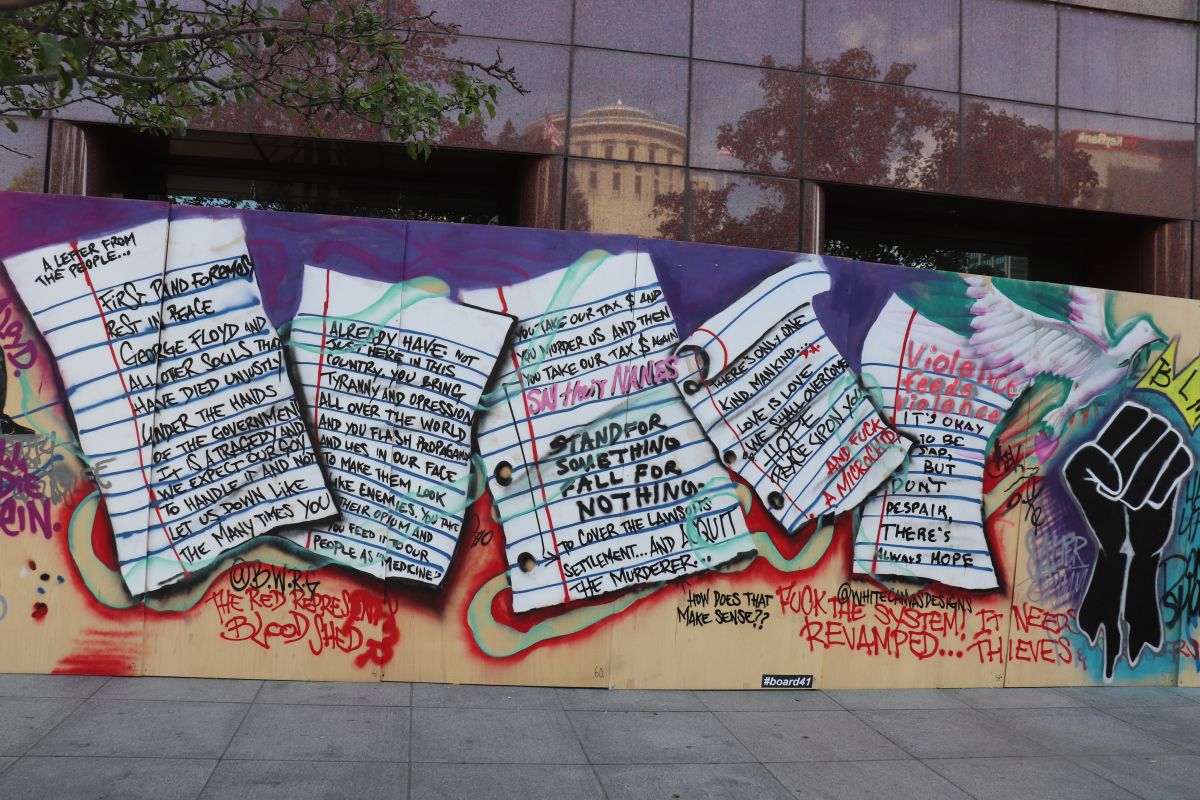 A LETTER FROM
THE PEOPLE...
FIRST AND FOREMOST
REST IN PEACE
GEORGE FLOYD AND
ALL OTHER SOULS THAT
HAVE DIED UNJUSTLY
UNDER THE HANDS
OF THE GOVERNMENT
IT IS A TRAGEDY AND
WE EXPECT OUR GOV
TO HANDLE IT AND NOT
LET US DOWN LIKE
THE MANY TIMES YOU
ALREADY HAVE: NOT
JUST HERE IN THIS
COUNTRY, YOU BRING
TYRANNY AND OPRESSION
ALL OVER THE WORLD
AND YOU FLASH PROPAGANDA
AND LIES IN OUR FACE
TO MAKE THEM LOOK
LIKE ENEMIES. YOU TAKE
THEIR OPIUM AND
YOU FEED IT TO OUR
PEOPLE AS "MEDICINE"
YOU TAKE OUR TAX $ AND
YOU MURDER US AND THEN
YOU TAKE OUR TAX $ AGAIN
SAY THEIR NAMES
STAND FOR
SOMETHING
FALL FOR
NOTHING.
TO COVER THE LAWSUITS
SETTLEMENT... AND ACQUIT
THE MURDERER.
THERE'S ONLY ONE
KIND. MANKIND...
LOVE IS LOVE
WE SHALL OVERCOME
HOPE
PEACE UPON YOU
AND FUCK
A MICROCHIP
Violence
feeds
violence
IT'S OKAY
TO BE
SAD,
BUT
DON'T
DESPAIR,
THERE'S
ALWAYS HOPE
@B.W.R
THE RED REPRESENTS
BLOOD SHED
HOW DOES THAT
MAKE SENSE??
@WHITECANVASDESIGNS
FUCK THE SYSTEM! IT NEEDS
REVAMPED... THIEVES
60
#board41
KeyBank